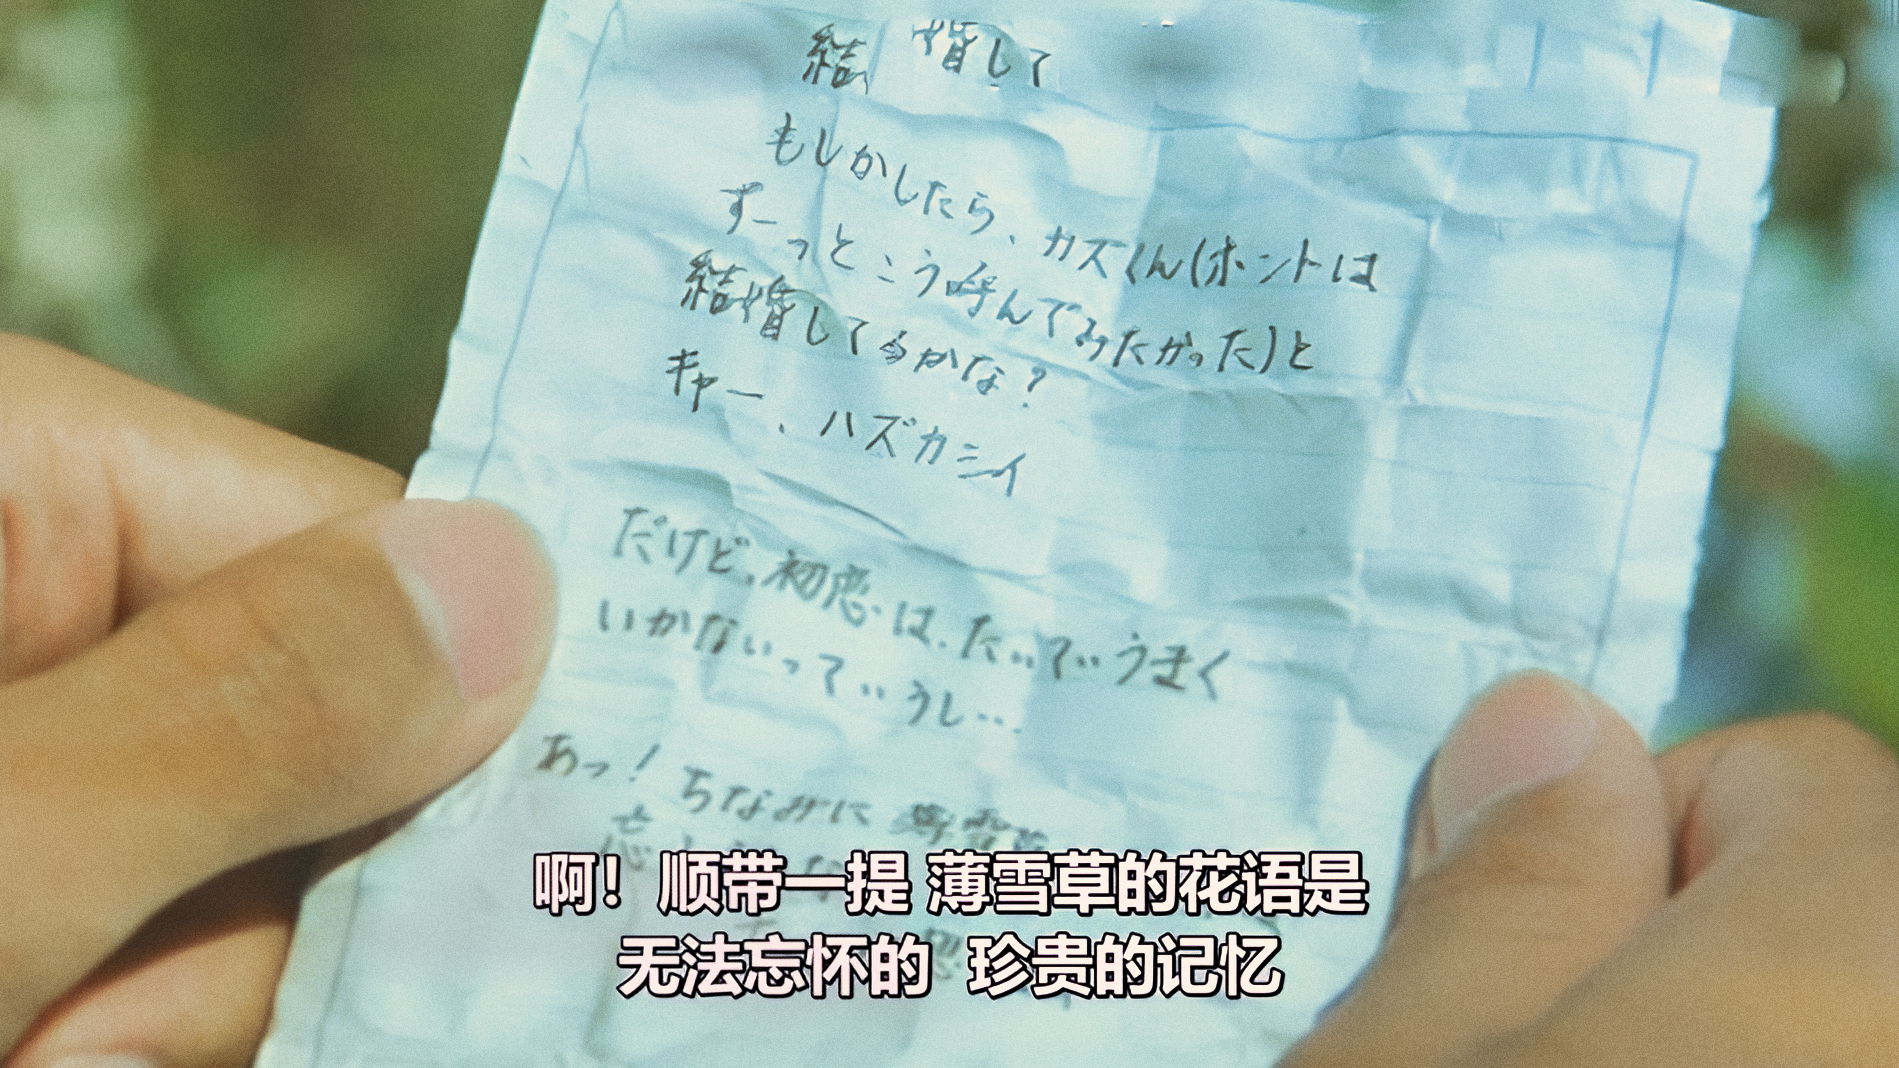 結婚して
もしかしたら、カズくん(ホントは
ずーっとこう呼んでみたかった)と
結婚してるかな?
キャー、ハズカシイ
だけど、初恋は、たいていうまく
いかないっていうし…
あっ!ちなみに薄雪草
忘
啊！顺带一提 薄雪草的花语是
无法忘怀的 珍贵的记忆